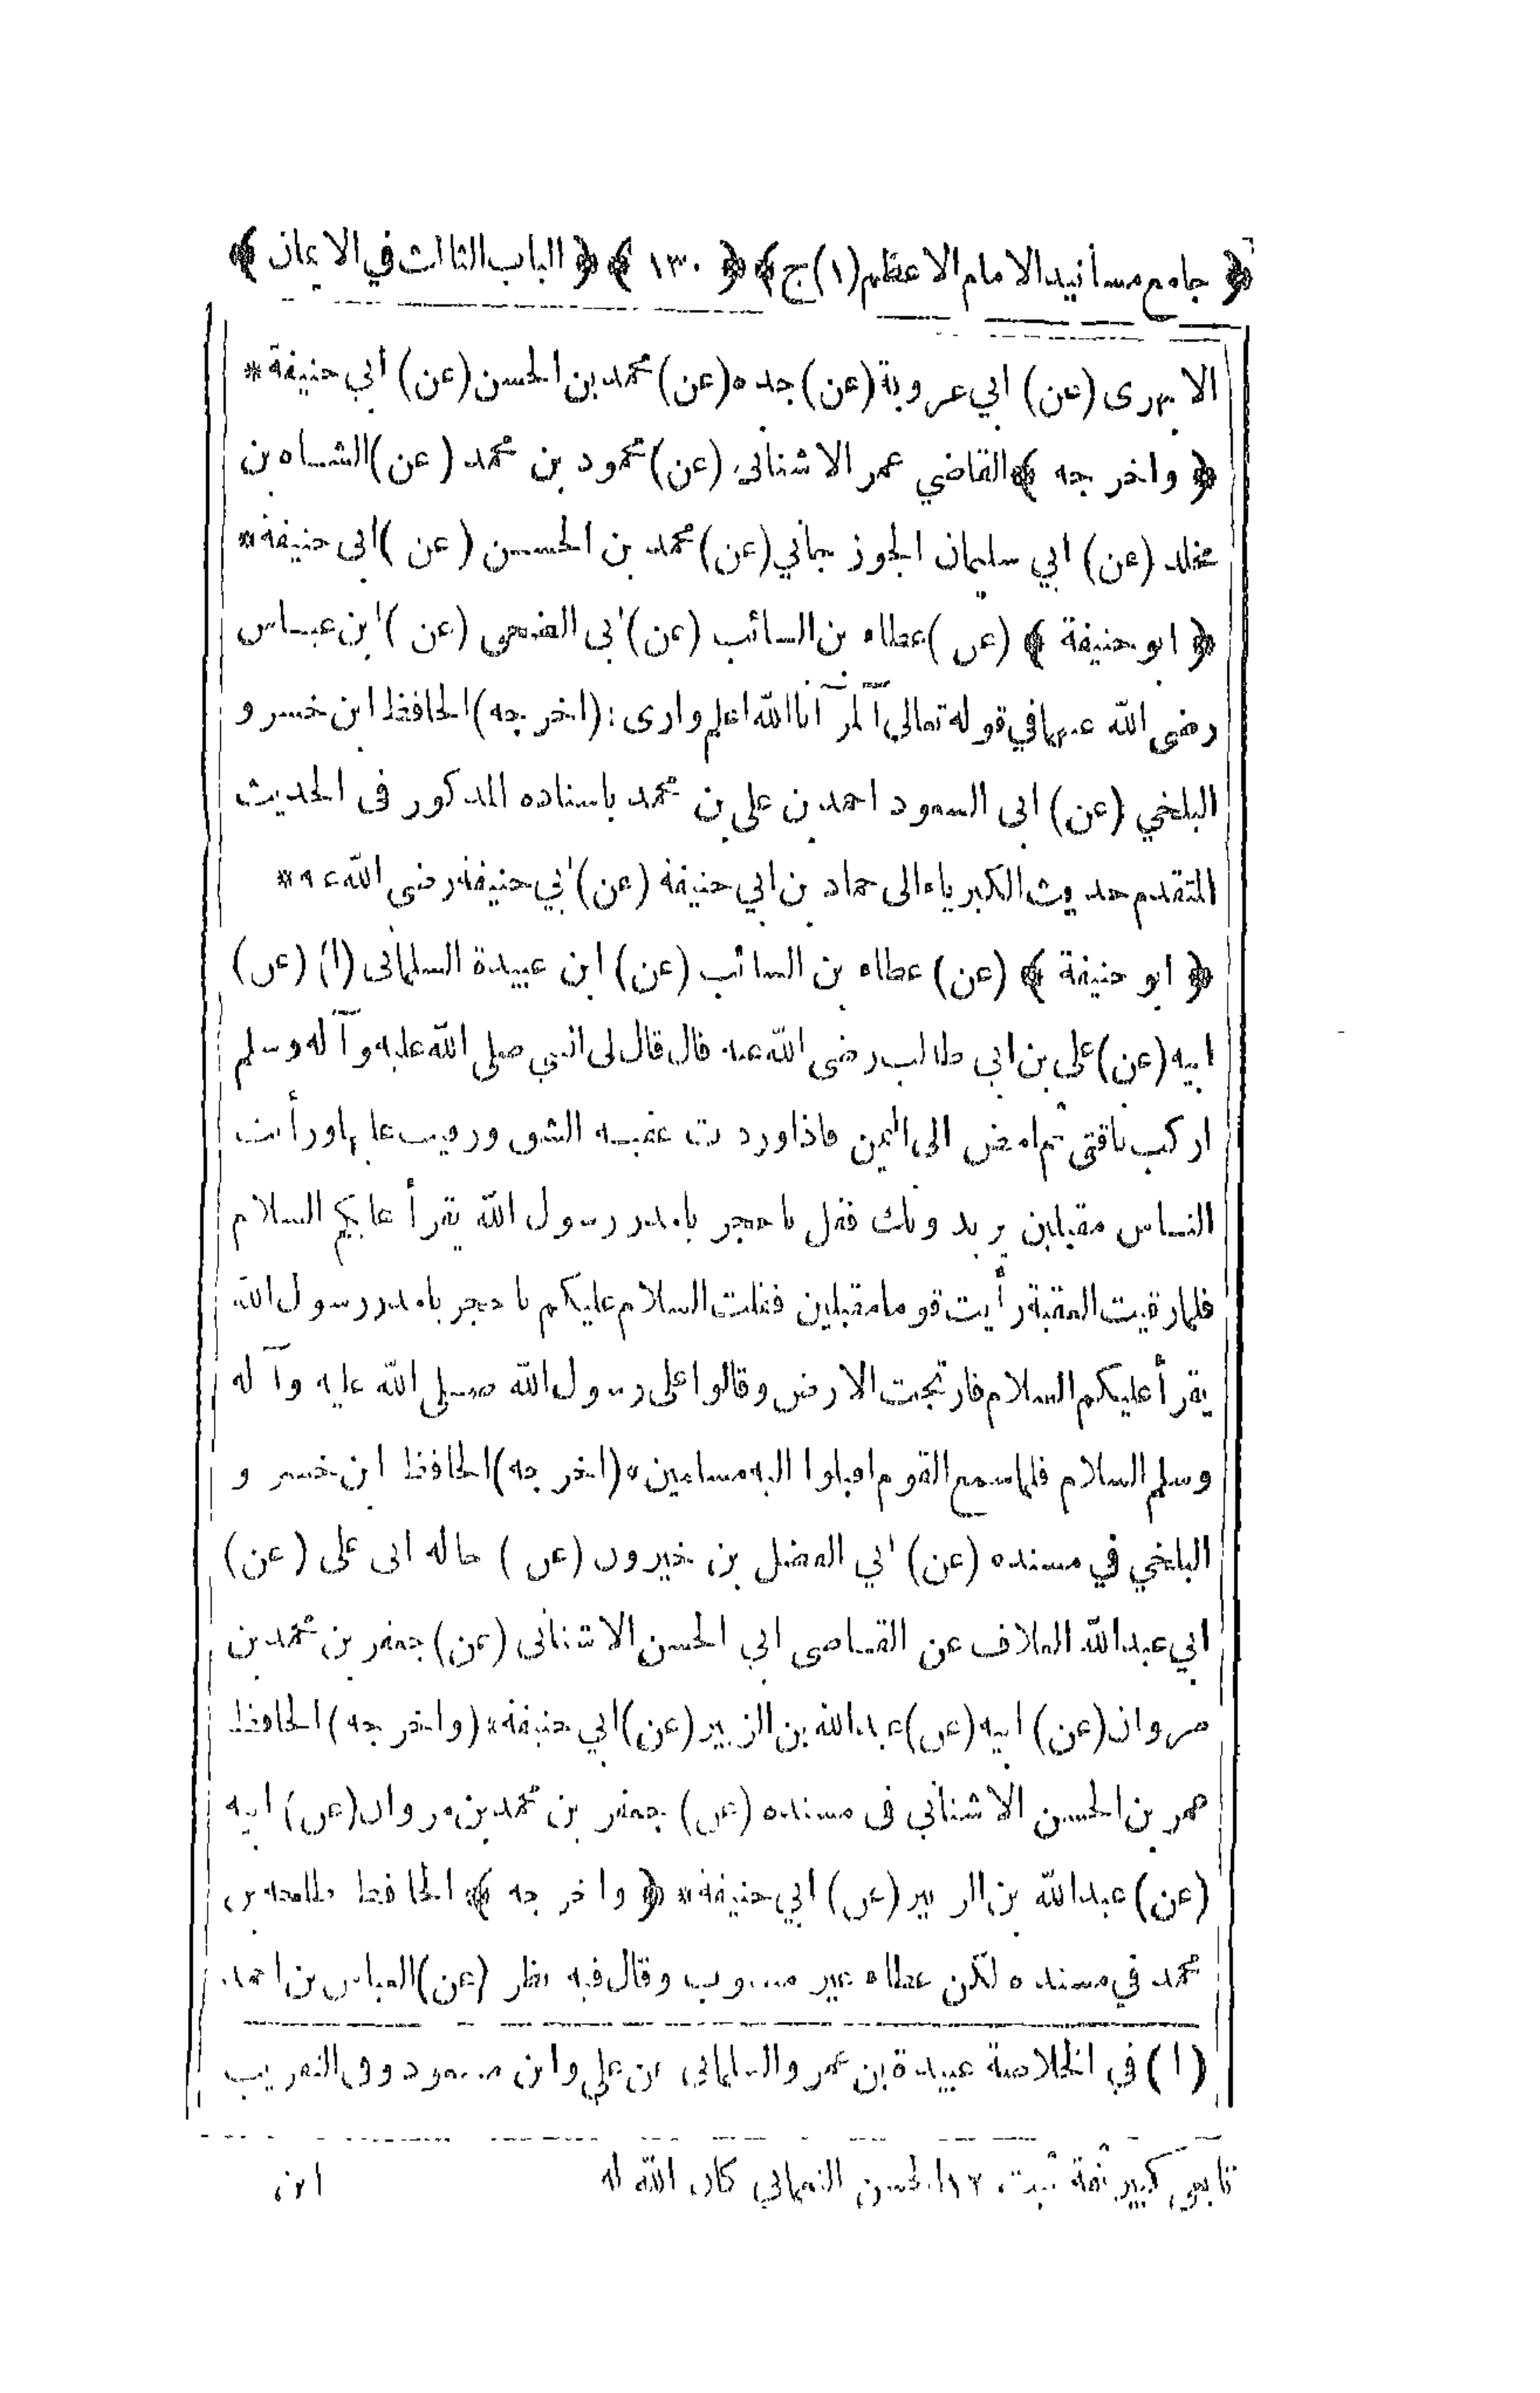 ﴿ جامع مسانيد الامام الاعظم (١) ج﴾ ﴿ ١٣٠ ﴾ ﴿ الباب الثالث في الايمان ﴾
الابهرى (عن) ابي عروبة (عن) جده (عن) محمد بن الحسن (عن) ابي حنيفة *
﴿ واخرجه ﴾ القاضي عمر الاشناني (عن) محمود بن محمد (عن) الشاه بن
مخلد (عن) ابي سليمان الجوزجاني (عن) محمد بن الحسن (عن) ابى حنيفة *
﴿ ابو حنيفة ﴾ (عن) عطاء بن السائب (عن) ابى الضحى (عن) ابن عباس
رضى الله عنهما في قوله تعالى آلمر آنا الله اعلم وارى : (اخرجه) الحافظ ابن خسرو
البلخي (عن) ابى السعود احمد بن علي بن محمد باسناده المذكور فى الحديث
المتقدم حديث الكبرياء الى حماد بن ابي حنيفة (عن) ابي حنيفة رضى الله عنه *
﴿ ابو حنيفة ﴾ (عن) عطاء بن السائب (عن) ابن عبيدة السلمانى (١) (عن)
ابيه (عن) على بن ابي طالب رضى الله عنه قال قال لى النبي صلى الله عليه وآله وسلم
اركب ناقتى ثم امض الى اليمن فاذا وردت عقبة ورقيت عليها ورأيت
الناس مقبلين يريدونك فقل يا حجر يا مدر رسول الله يقرأ عليكم السلام
فلما رقيت العقبة رأيت قوما مقبلين فقلت السلام عليكم يا حجر يا مدر رسول الله
يقرأ عليكم السلام فارتجت الارض وقالوا على رسول الله صلى الله عليه وآله
وسلم السلام فلما سمع القوم اقبلوا اليه مسلمين * (اخرجه) الحافظ ابن خسرو
البلخي في مسنده (عن) ابي الفضل بن خيرون (عن) خاله ابى على (عن)
ابي عبد الله العلاف عن القاضى ابي الحسن الاشنانى (عن) جعفر بن محمد بن
مروان (عن) ابيه (عن) عبد الله بن الزبير (عن) ابي حنيفة * (واخرجه) الحافظ
عمر بن الحسن الاشناني فى مسنده (عن) جعفر بن محمد بن مروان (عن) ابيه
(عن) عبد الله بن الزبير (عن) ابي حنيفة * ﴿ واخرجه ﴾ الحافظ طلحة بن
محمد في مسنده لكن عطاء غير منسوب وقال فيه نظر (عن) العباس بن احمد
(١) في الخلاصة عبيدة بن عمرو السلماني عن علي وابن مسعود وفى التقريب
تابعي كبير ثقة ثبت ١٢ الحسن النعماني كان الله له
ابن